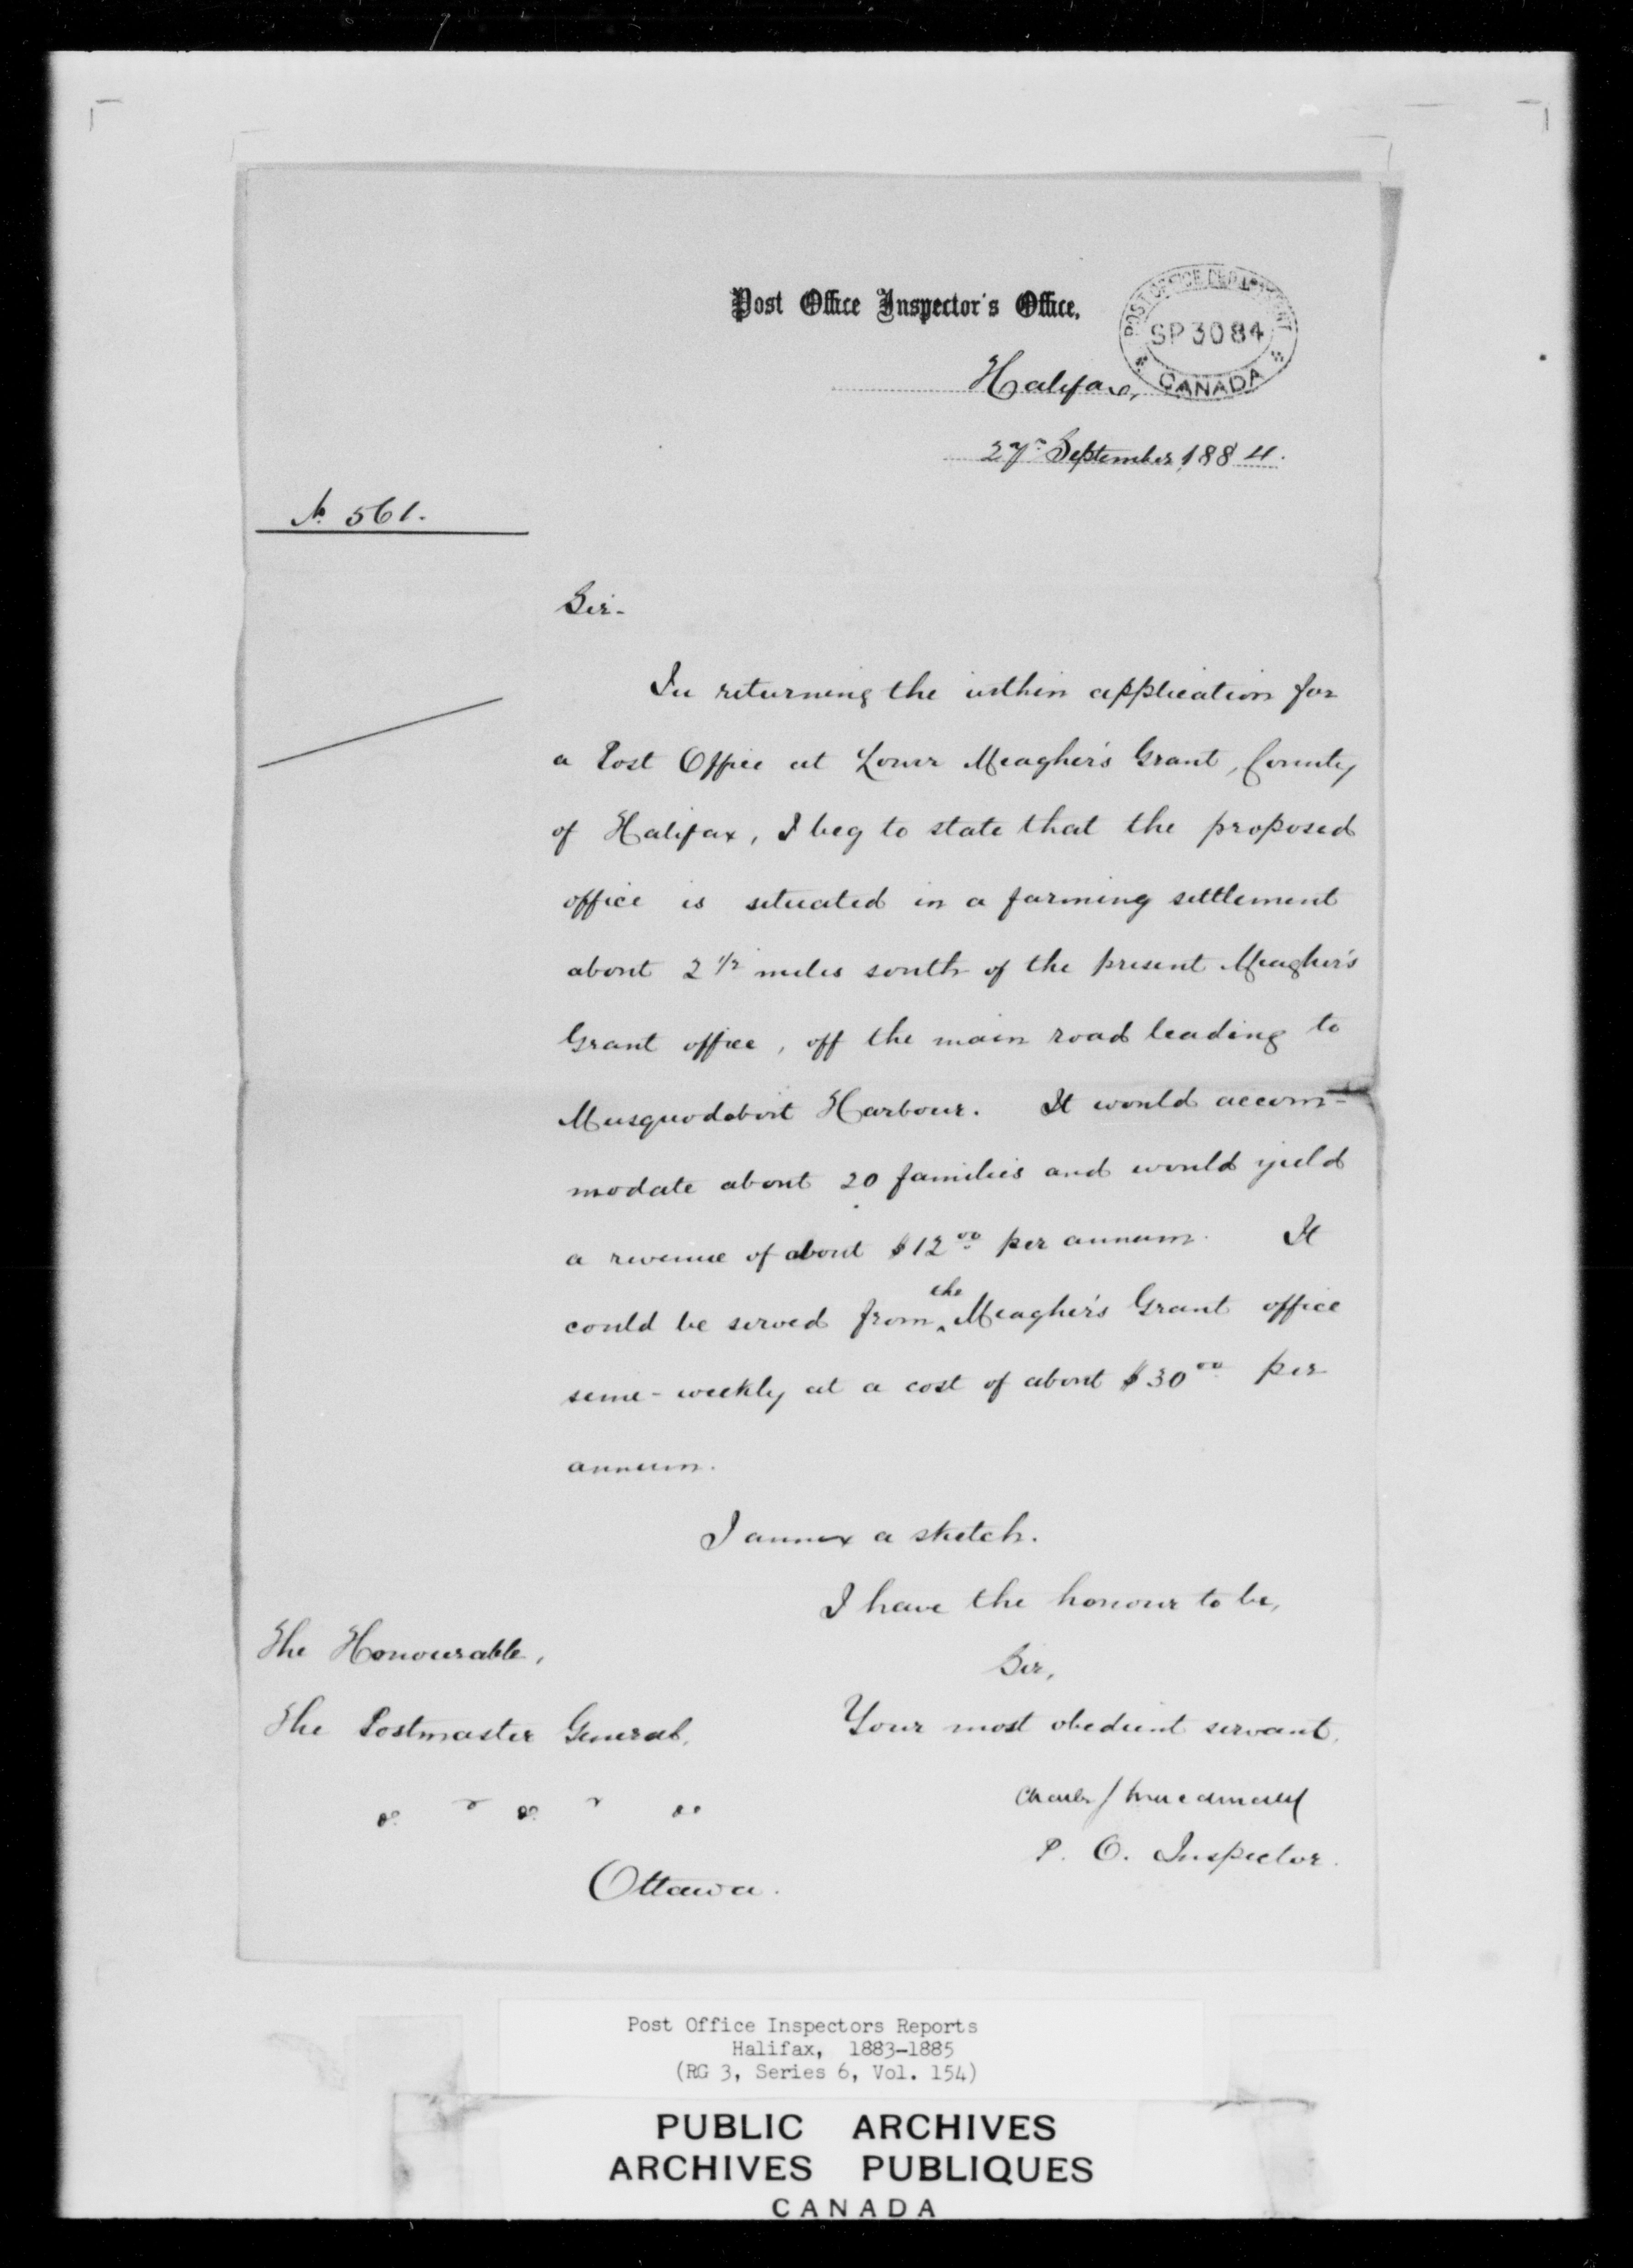 Post Office Inspector's Office,
POST OFFICE DEPARTMENT
SP 30 84
CANADA
Halifax,
27th September, 1884.
No. 561.
Sir-
In returning the within application for
a Post Office at Lower Meagher's Grant, County
of Halifax, I beg to state that the proposed
office is situated in a farming settlement
about 2 1/2 miles south of the present Meagher's
Grant office, off the main road leading to
Musquodoboit Harbour. It would accom-
modate about 20 families and would yield
a revenue of about $12.00 per annum. It
could be served from the Meagher's Grant office
semi-weekly at a cost of about $30.00 per
annum.
I annex a sketch.
I have the honour to be,
Sir,
Your most obedient servant,
Charles J Macdonald
P. O. Inspector.
The Honourable,
The Postmaster General,
Ottawa.
Post Office Inspectors Reports
Halifax, 1883-1885
(RG 3, Series 6, Vol. 154)
PUBLIC ARCHIVES
ARCHIVES PUBLIQUES
CANADA